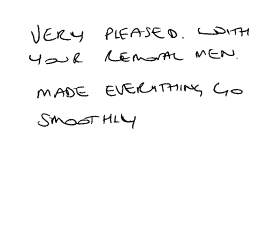 VERY PLEASED. WITH
YOUR REMOVAL MEN.
MADE EVERYTHING GO
SMOOTHLY